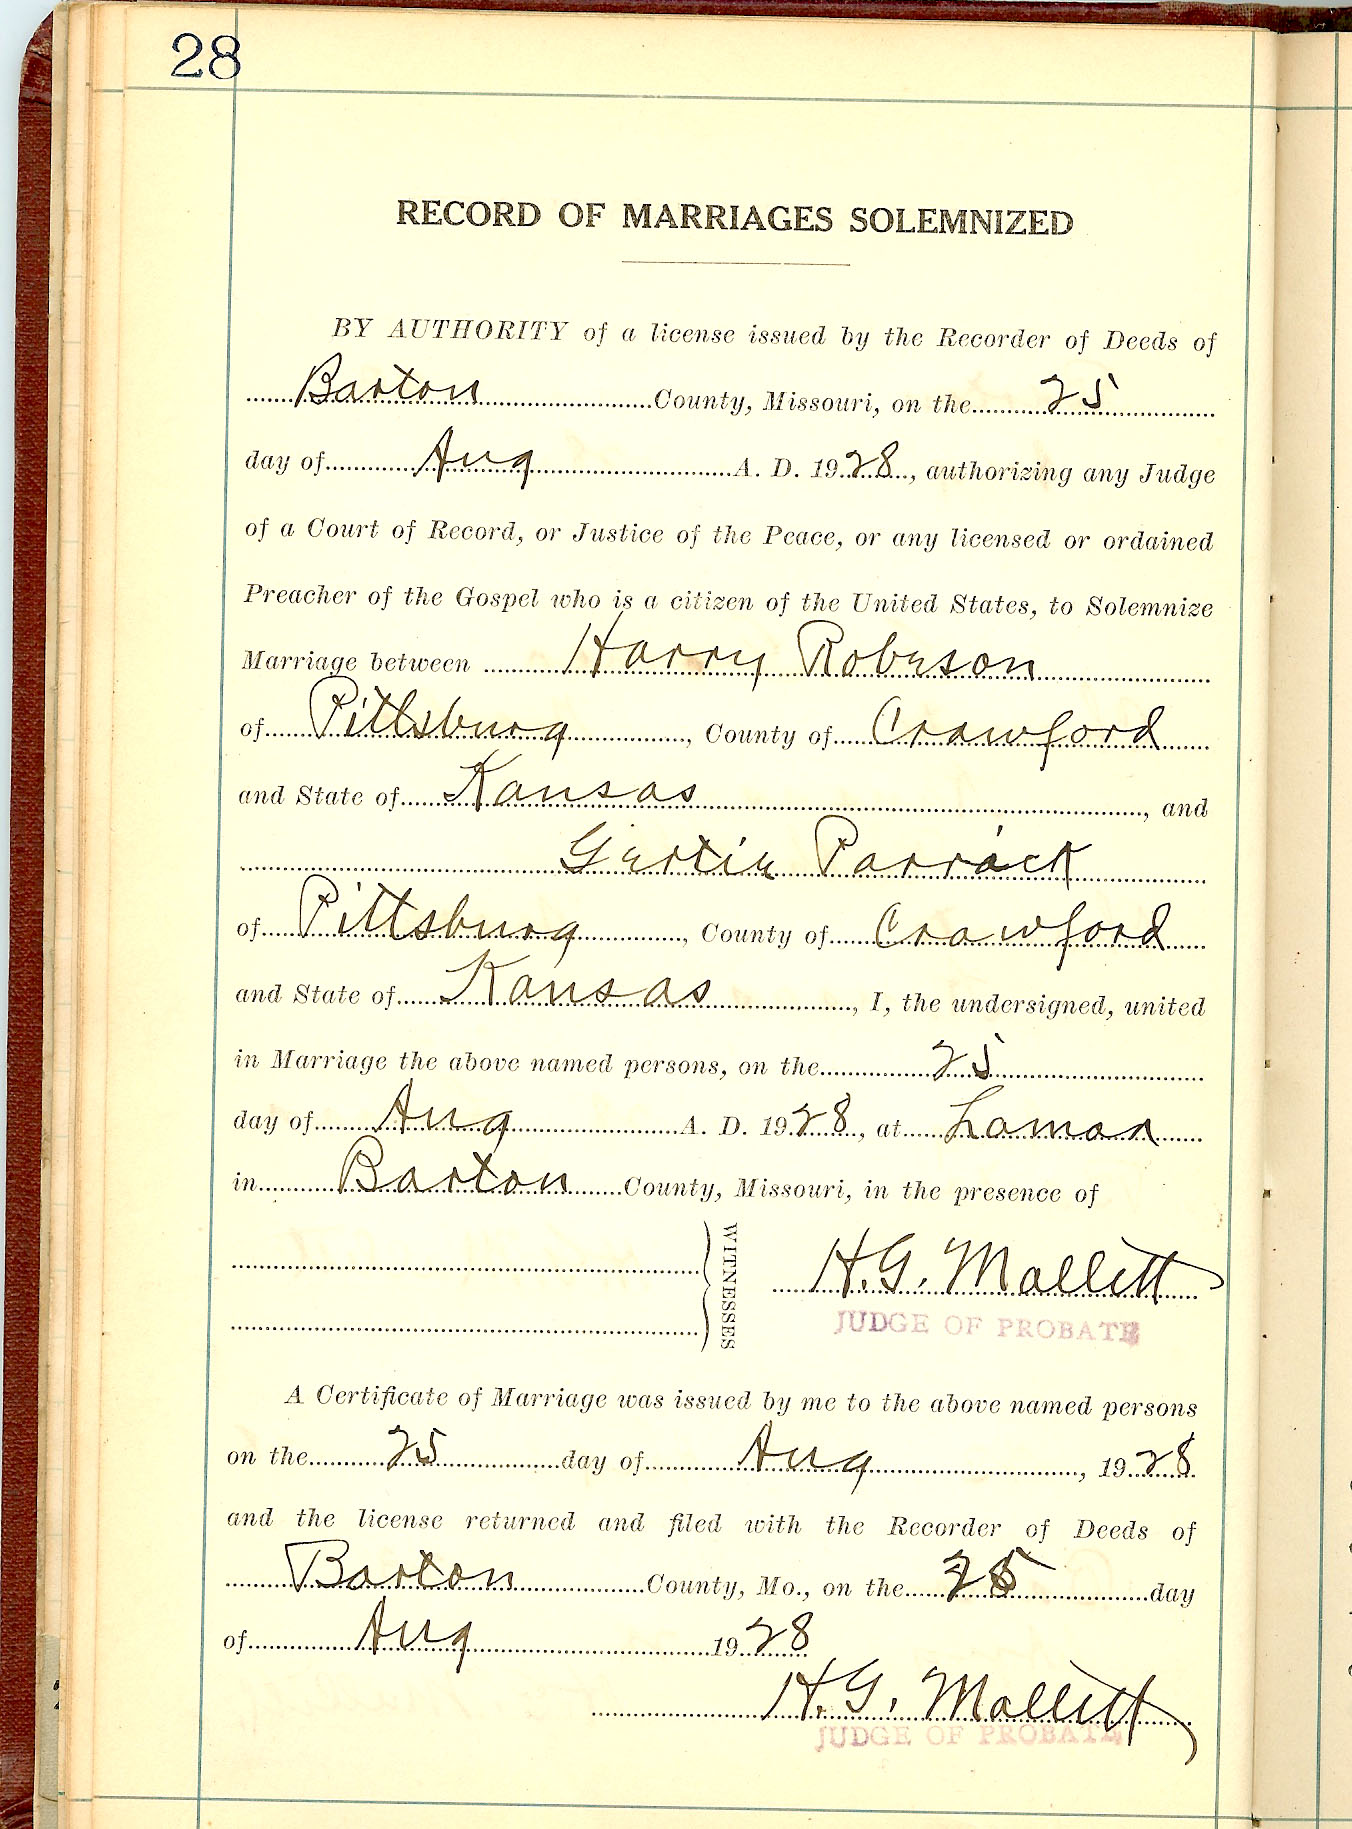 28
RECORD OF MARRIAGES SOLEMNIZED
BY AUTHORITY of a license issued by the Recorder of Deeds of
Barton County, Missouri, on the 25
day of Aug A. D. 1928, authorizing any Judge
of a Court of Record, or Justice of the Peace, or any licensed or ordained
Preacher of the Gospel who is a citizen of the United States, to Solemnize
Marriage between Harry Roberson
of Pittsburg, County of Crawford
and State of Kansas, and
Gertie Parrack
of Pittsburg, County of Crawford
and State of Kansas, I, the undersigned, united
in Marriage the above named persons, on the 25
day of Aug A. D. 1928, at Lamar
in Barton County, Missouri, in the presence of
WITNESSES
H. G. Mallett
JUDGE OF PROBATE
A Certificate of Marriage was issued by me to the above named persons
on the 25 day of Aug, 1928
and the license returned and filed with the Recorder of Deeds of
Barton County, Mo., on the 25 day
of Aug 1928
H. G. Mallett
JUDGE OF PROBATE